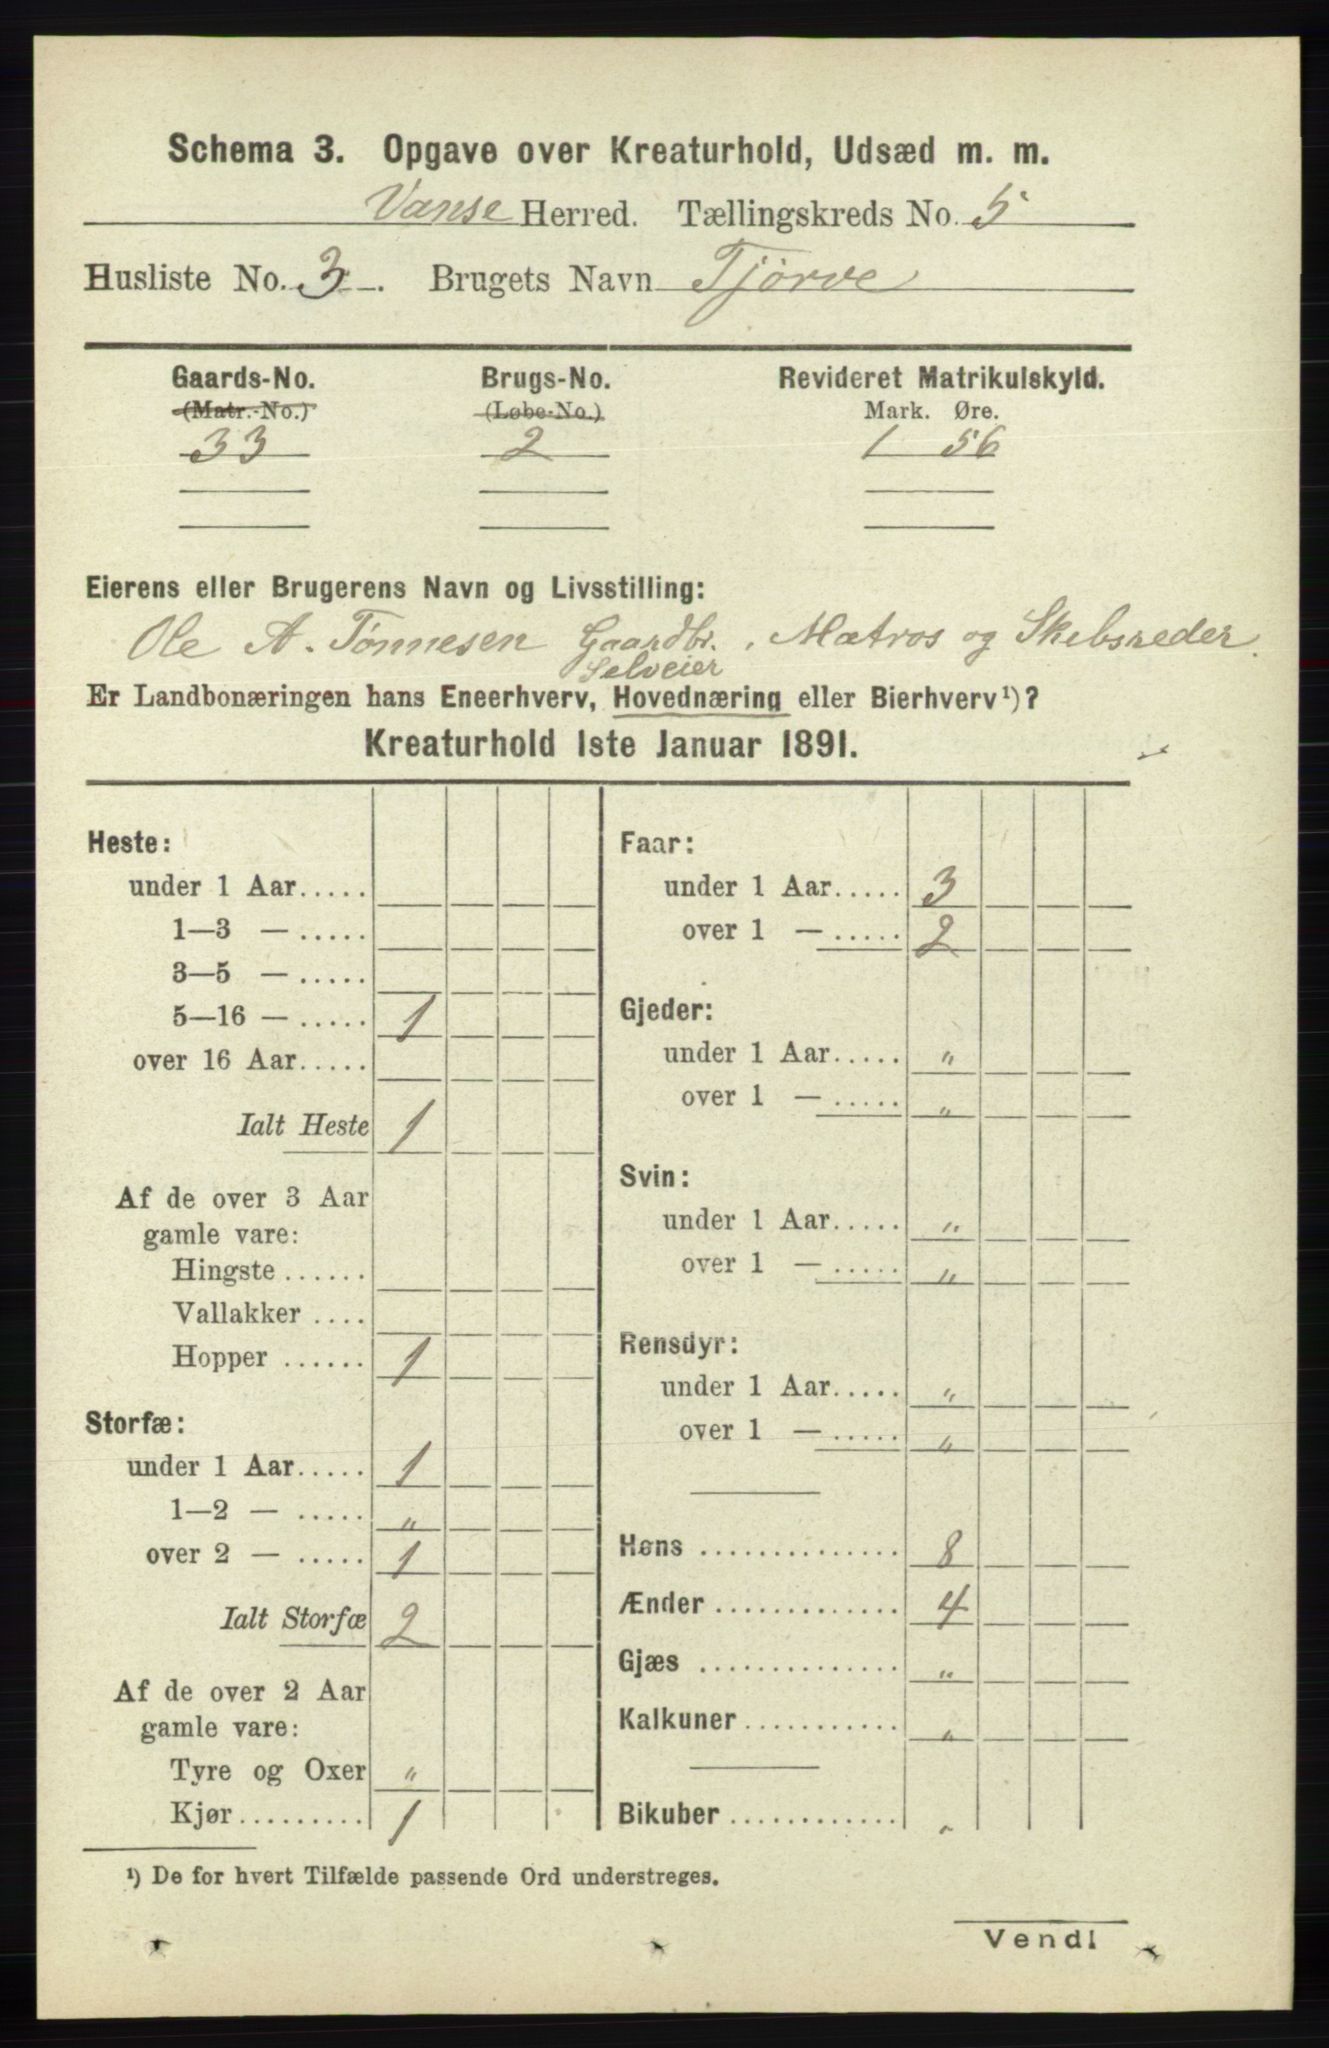 Schema 3. Opgave over Kreaturhold, Udsæd m. m.
Vanse Herred. Tællingskreds No. 5
Husliste No. 3. Brugets Navn Tjörve
Gaards-No. Brugs-No. Revideret Matrikulskyld.
(Matr.-No.) (Løbe-No.) Mark. Øre.
33 2 1 56
Eierens eller Brugerens Navn og Livsstilling:
Ole A. Tønnesen Gaardbr., Matros og Skebsreder.
Selveier
Er Landbonæringen hans Eneerhverv, Hovednæring eller Bierhverv¹)?
Kreaturhold 1ste Januar 1891.
Heste:
under 1 Aar.....
1—3 — .....
3—5 — .....
5—16 — ..... 1
over 16 Aar.....
Ialt Heste 1
Af de over 3 Aar
gamle vare:
Hingste ......
Vallakker ....
Hopper ...... 1
Storfæ:
under 1 Aar..... 1
1—2 — ..... "
over 2 — ..... 1
Ialt Storfæ 2
Af de over 2 Aar
gamle vare:
Tyre og Oxer "
Kjør......... 1
Faar:
under 1 Aar..... 3
over 1 — ..... 2
Gjeder:
under 1 Aar..... "
over 1 — ..... "
Svin:
under 1 Aar..... "
over 1 — ..... "
Rensdyr:
under 1 Aar..... "
over 1 — ..... "
Høns .............. 8
Ænder ............. 4
Gjæs .............. "
Kalkuner........... "
Bikuber ............ "
¹) De for hvert Tilfælde passende Ord understreges.
Vend!